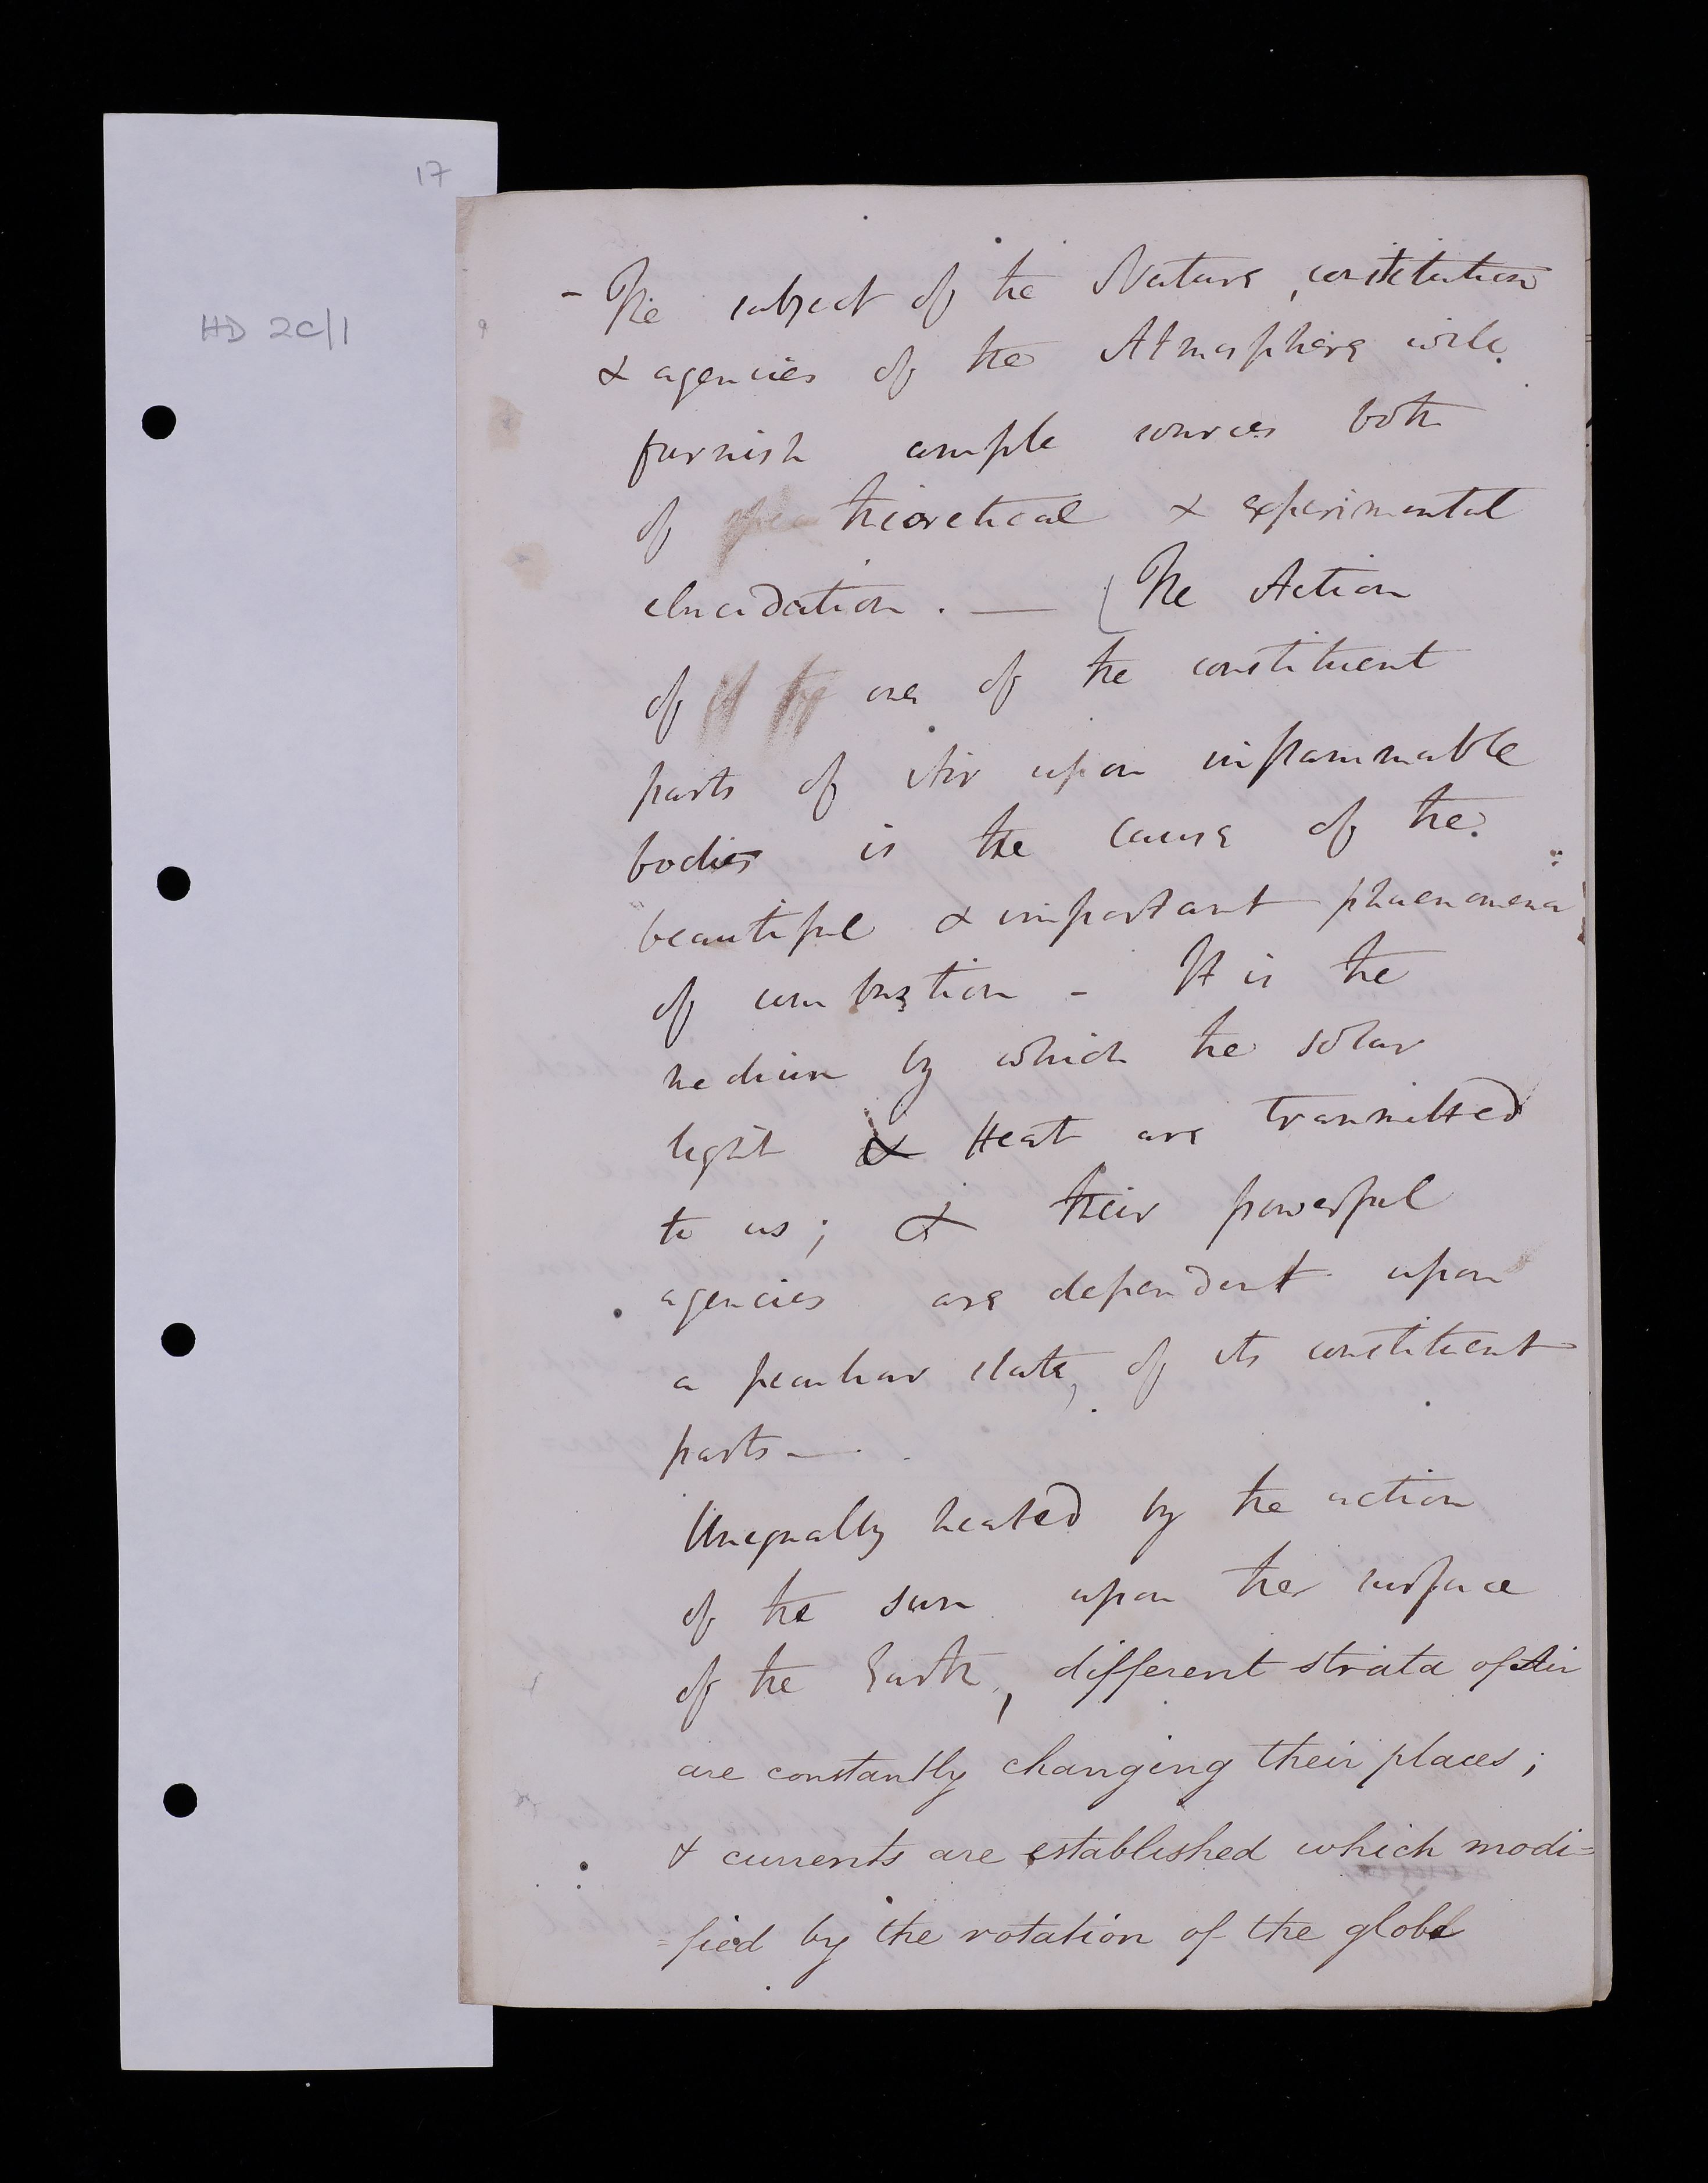 17
HD 2C/1
- The subject of the Nature, constitution
& agencies of the Atmosphere will
furnish ample sources both
of theoretical & experimental
elucidation. — (The Action
of one of the constituent
parts of Air upon inflammable
bodies is the cause of the
beautiful & important phaenomena
of combustion - It is the
medium by which the solar
light & Heat are transmitted
to us; & their powerful
agencies are dependent upon
a peculiar state, of its constituent
parts —
Unequally heated by the action
of the sun upon the surface
of the Earth, different strata of Air
are constantly changing their places;
& currents are established which modi=
=fied by the rotation of the globe